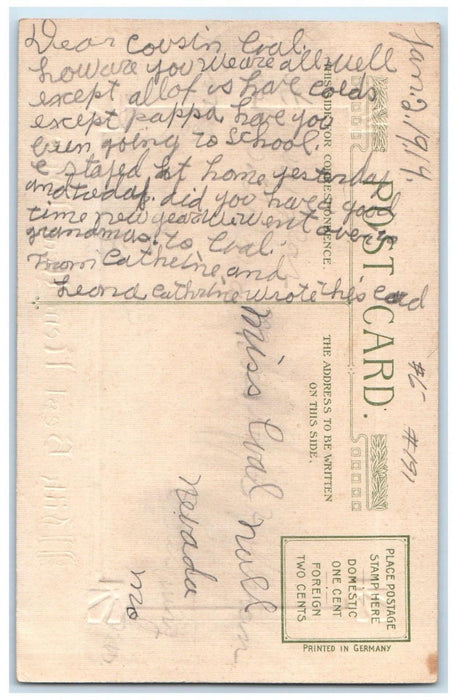 Jan. 2, 1914.
Dear Cousin Oval.
how are you we are all well
except all of us have colds
except pappa, have you
been going to school.
I stayed at home yesterday
and today. did you have good
time new year we went over
grandmas. to Oval.
From Catherine and
Leona Cathrine wrote this card
POST CARD.
THIS SIDE FOR CORRESPONDENCE.
THE ADDRESS TO BE WRITTEN
ON THIS SIDE.
Miss Oval
Nevada
Mo
PLACE POSTAGE
STAMP HERE
DOMESTIC
ONE CENT
FOREIGN
TWO CENTS
PRINTED IN GERMANY